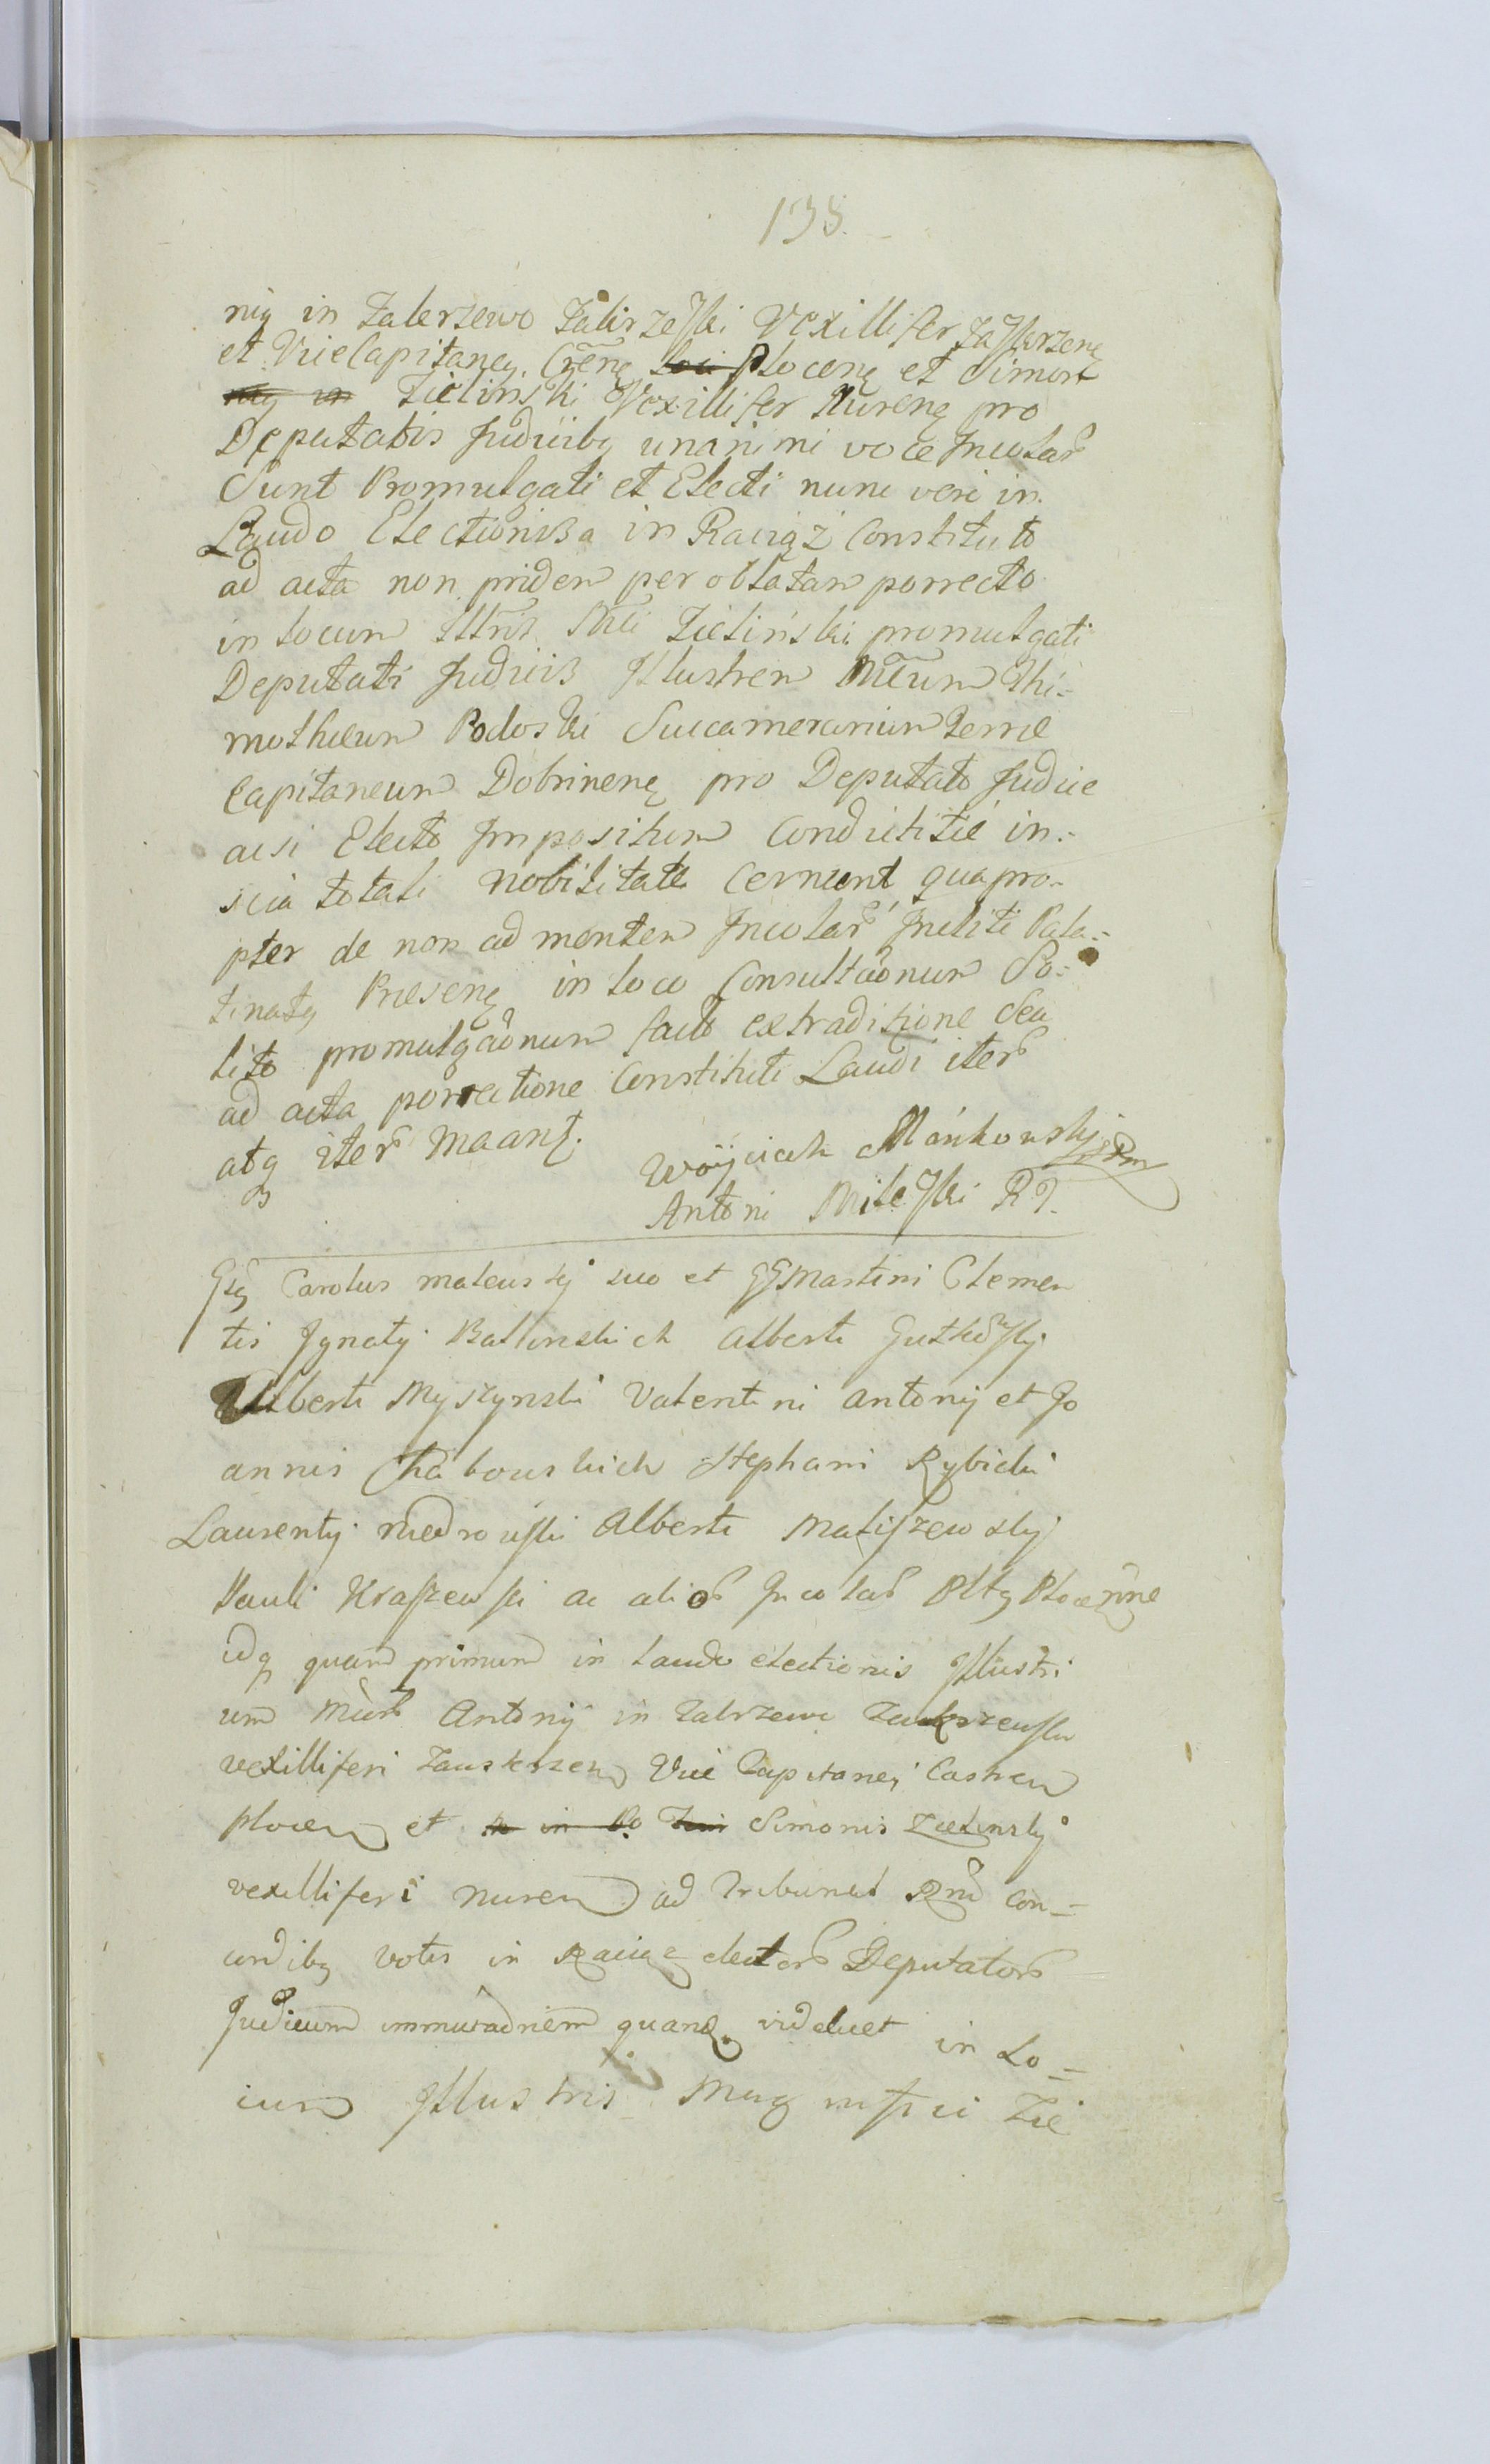 138.
nię in Zalerzewo Zalirzeſki Vexillifer Zaſkrzenę
et ViceCapitaneg. Crenę loci Plocenę et Simon
nię in Zielinski Vexillifer Nurenę pro
Deputatis Judiciibg unanimi voce Incolar
Sunt Promulgati et Electi nunc vero in
Laudo Electionis a in Raciąż Constituto
ad acta non pridem per oblatam porrecto
in locum Illris Mci Zielinski promulgati
Deputati Judicis Illustrem Mcum Thi-
motheum Podoski Succamerarium terrae
Capitaneum Dobrinenę pro Deputato Judice
acsi Electo Impositum Condictitie in-
scia totali nobilitate cernunt quapro-
pter de non ad mentem Incolar Incliti Pala-
tinatg Presenę in loco Consultaonum So-
lito promulgaonum facto extraditione seu
ad acta porrectione Constituti Laudi iter
atq iter Maant.
Woyciech Mańkowskij
Antoni Mileſki R J.
Carolus mateuskij suo et GG Martini Clemen
tis Ignatij Balinskich Alberti Gutkoſkij
Alberti Myszynski Valentini Antonij et Jo
annis Chabouskich Stephani Rybicki
Laurentij niedrouſki Alberti Matiſzewskij
Pauli Kraſzewſki ac alior Incolar Pltg Plocenne
idq quam primum in laudo electionis Illustri
um Mcor Antonij in Zalrzewo Zaukrzewſki
vexilliferi Zauskrzen Vice Capitanei Castren
plocen et Simonis Zielinskij
vexilliferi nuren ad Tribunal Rni con-
cordibg votis in Raciąz elector Deputator
Judicum immutaonem quand videlicet in Lo-
cum Illustris Magnifici Zie